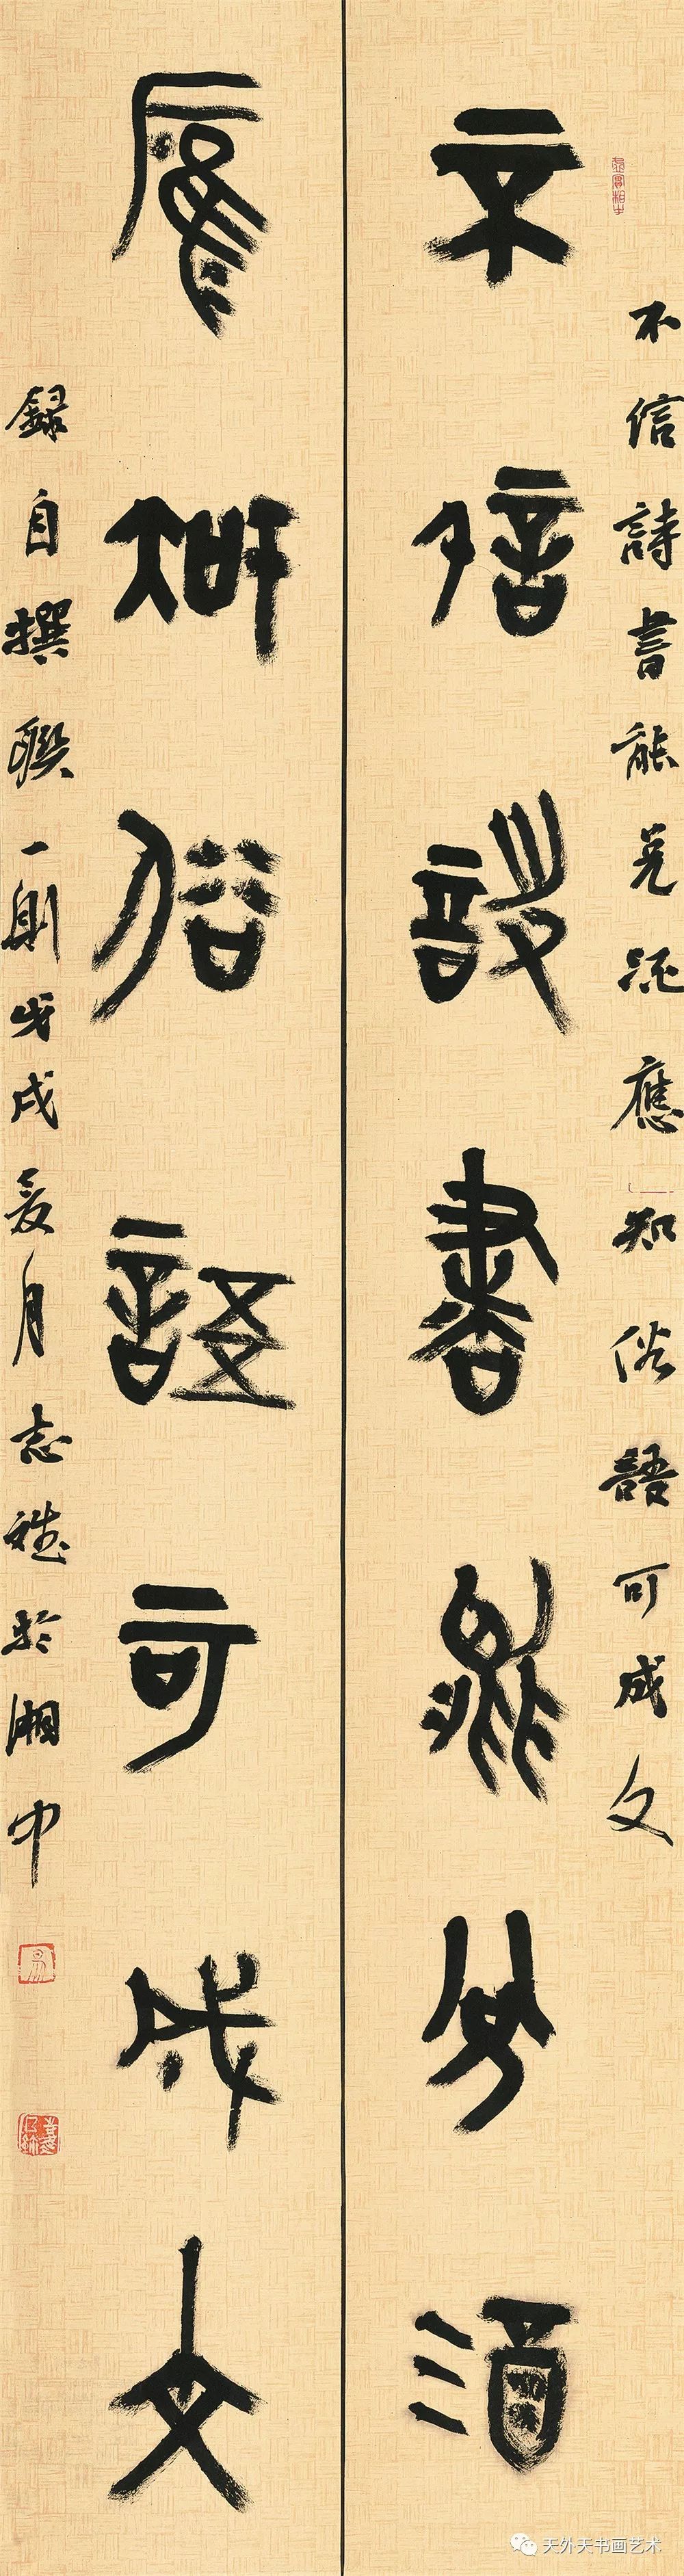 不信詩書能兌酒應知俗語可成文
不信詩書能兌酒
應知俗語可成文
録自撰聯一則戊戌夏月志於湘中
天外天书画艺术